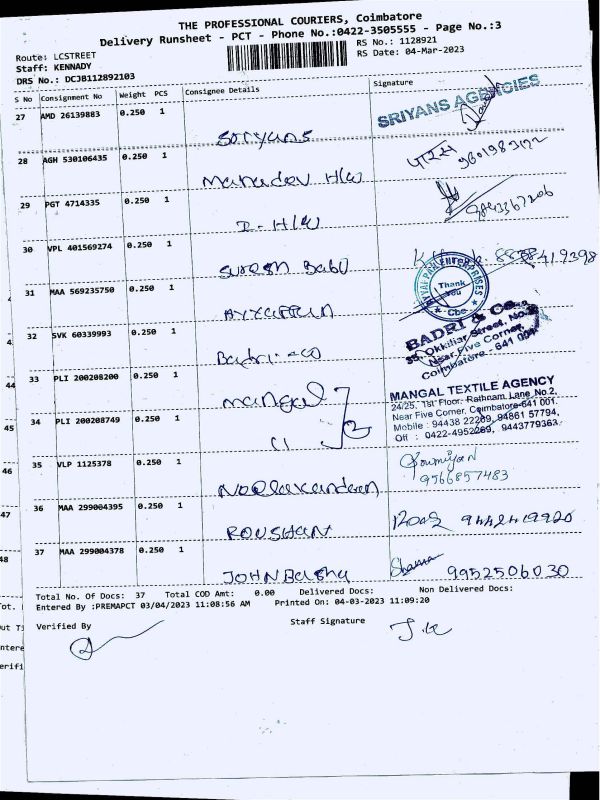 THE PROFESSIONAL COURIERS, Coimbatore
Delivery Runsheet - PCT - Phone No.:0422-3505555 - Page No.:3
Route: LCSTREET
RS No.: 1128921
Staff: KENNADY
RS Date: 04-Mar-2023
DRS No.: DCJB112892103
S No Consignment No Weight PCS Consignee Details Signature
27 AMD 26139883 0.250 1
SRIYANS AGENCIES
28 AGH 530106435 0.250 1 Mahadev H/W
29 PGT 4714335 0.250 1 I - H/W 9843367206
30 VPL 401569274 0.250 1 Suresh Babu
31 MAA 569235750 0.250 1
ENTERPRISES
Thank You
Cbe.
32 SVK 60339993 0.250 1 Badri - co
BADRI & Co.
35, Okkiliar Street, No.2
Near Five Corner,
Coimbatore - 641 001
33 PLI 200208200 0.250 1 mangal
34 PLI 200208749 0.250 1 "
MANGAL TEXTILE AGENCY
24/25, 1st Floor, Rathnam Lane No.2,
Near Five Corner, Coimbatore-641 001.
Mobile : 94438 22269, 94861 57794,
Off : 0422-4952269, 9443779363
35 VLP 1125378 0.250 1
9566857483
36 MAA 299004395 0.250 1 ROUSHAN
37 MAA 299004378 0.250 1 JOHN Basha 9952506030
Total No. Of Docs: 37 Total COD Amt: 0.00 Delivered Docs: Non Delivered Docs:
Entered By :PREMAPCT 03/04/2023 11:08:56 AM Printed On: 04-03-2023 11:09:20
Verified By Staff Signature
44
45
46
47
48